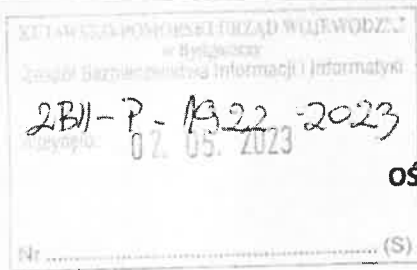 KUJAWSKO-POMORSKI URZĄD WOJEWÓDZKI
w Bydgoszczy
Bezpieczeństwa Informacji i Informatyki
2BII-P-1922-2023
02. 05. 2023
OŚ
Nr ........................................ (S)